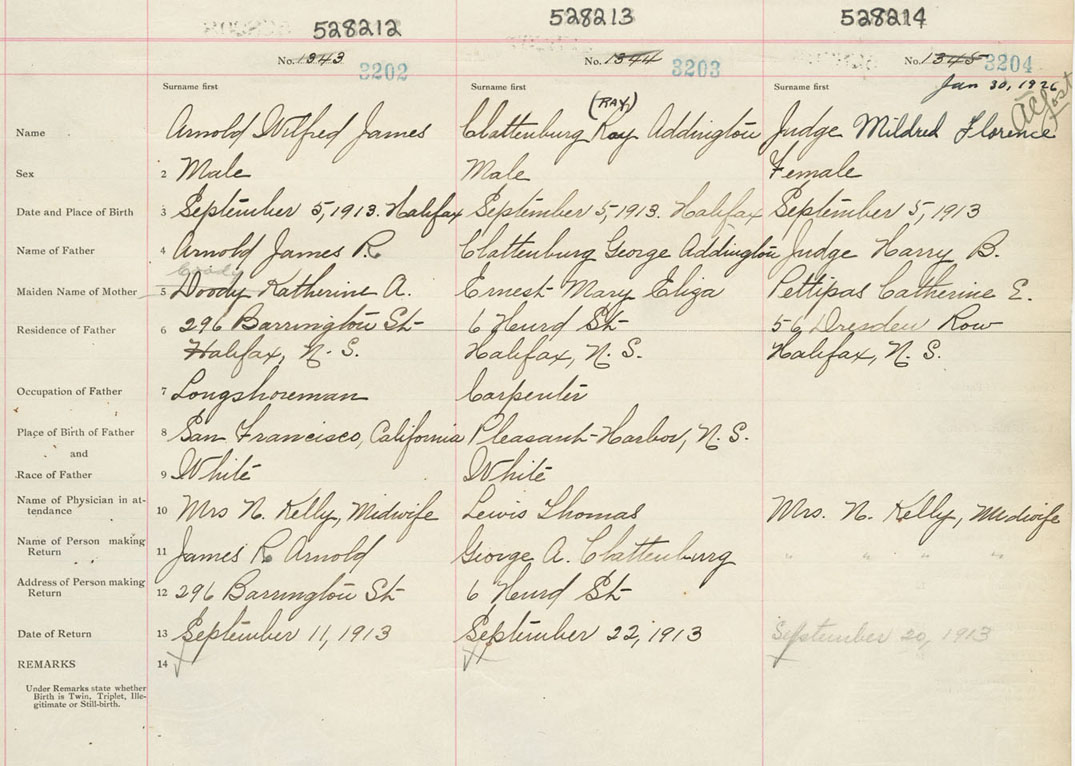 528212 528213 528214
No. 1343 3202 No. 1344 3203 No. 1345 3204
Surname first Surname first Surname first Jan 30, 1926
(RAY)
Name Arnold Wilfred James Clattenburg Ray Addington Judge Mildred Florence
Sex 2 Male Male Female
Date and Place of Birth 3 September 5, 1913. Halifax September 5, 1913. Halifax September 5, 1913
Name of Father 4 Arnold James R Clattenburg George Addington Judge Harry B.
Maiden Name of Mother 5 Doody Katherine A. Ernest Mary Eliza Pettipas Catherine E.
Residence of Father 6 296 Barrington St 6 Hurd St 56 Dresden Row
Halifax, N. S. Halifax, N. S. Halifax, N. S.
Occupation of Father 7 Longshoreman Carpenter
Place of Birth of Father 8 San Francisco, California Pleasant Harbor, N. S.
and
Race of Father 9 White White
Name of Physician in at-
tendance 10 Mrs N. Kelly, Midwife Lewis Thomas Mrs. N. Kelly, Midwife
Name of Person making
Return 11 James R Arnold George A. Clattenburg " " " "
Address of Person making
Return 12 296 Barrington St 6 Hurd St
Date of Return 13 September 11, 1913 September 22, 1913 September 20, 1913
REMARKS 14
Under Remarks state whether
Birth is Twin, Triplet, Ille-
gitimate or Still-birth.